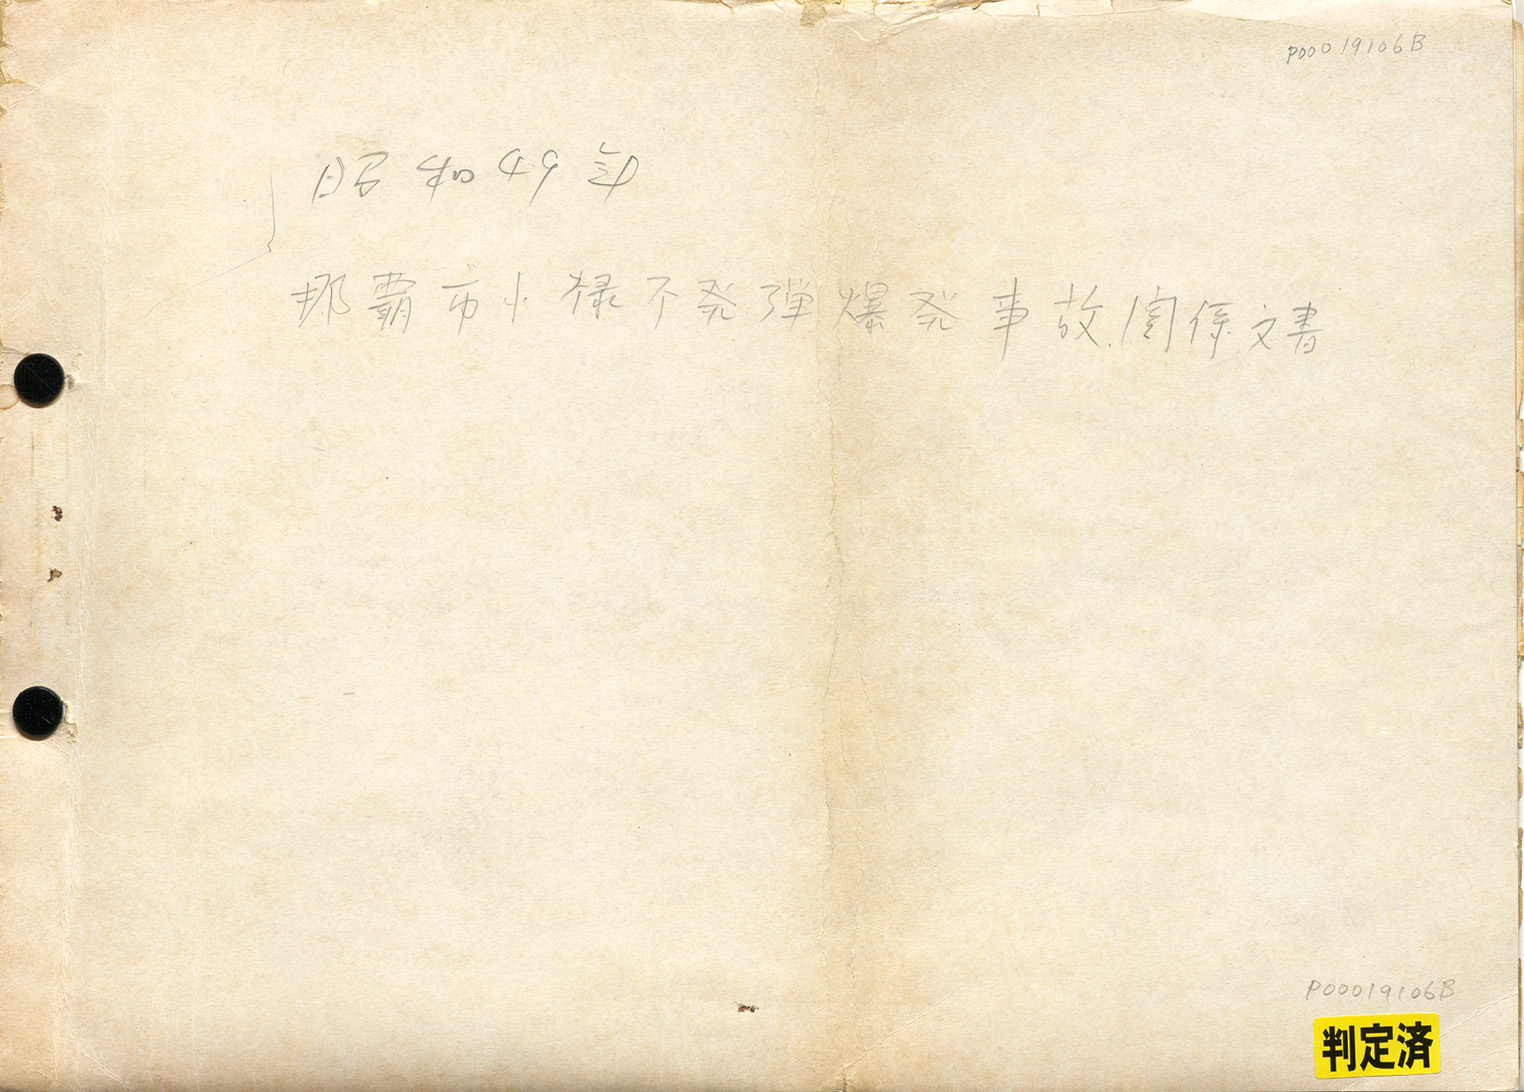 P00019106B
昭和49年
那覇市小禄不発弾爆発事故関係文書
P00019106B
判定済